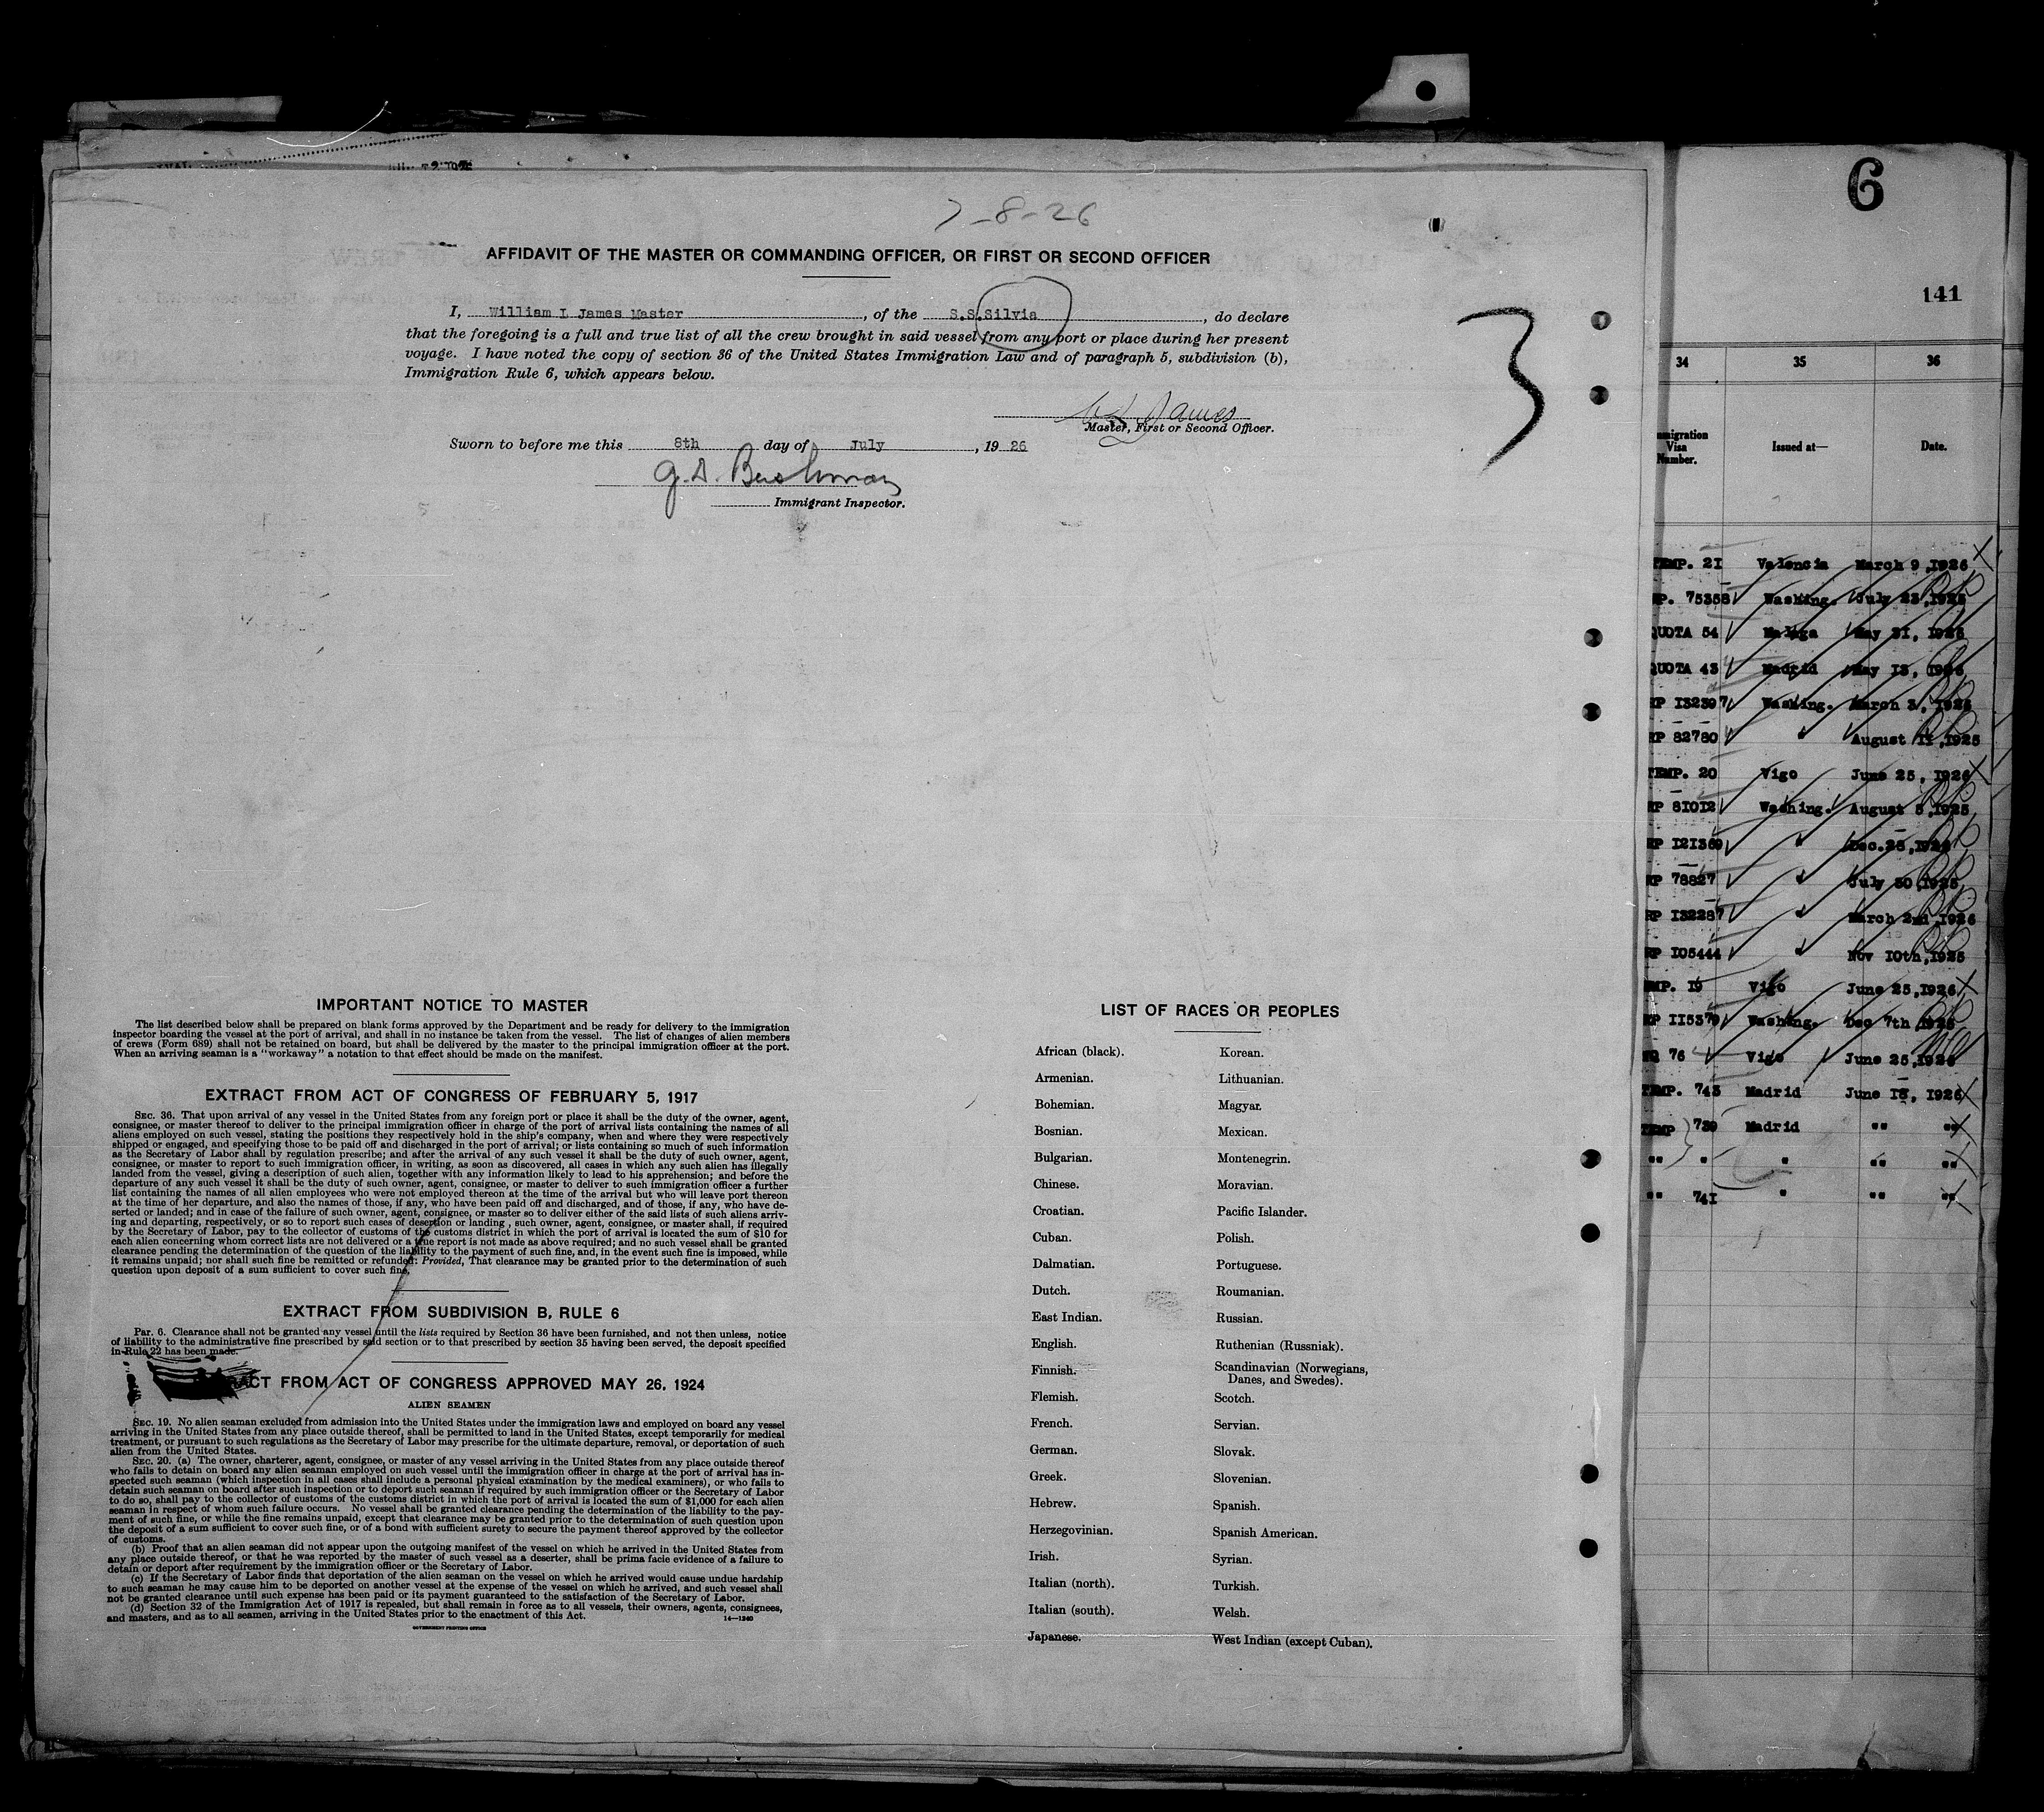 7-8-26
AFFIDAVIT OF THE MASTER OR COMMANDING OFFICER, OR FIRST OR SECOND OFFICER
I, William L James Master, of the S.S.Silvia, do declare
that the foregoing is a full and true list of all the crew brought in said vessel from any port or place during her present
voyage. I have noted the copy of section 36 of the United States Immigration Law and of paragraph 5, subdivision (b),
Immigration Rule 6, which appears below.
3
W L James
Master, First or Second Officer.
Sworn to before me this 8th day of July, 1926
G. D. Bushman
Immigrant Inspector.
IMPORTANT NOTICE TO MASTER
The list described below shall be prepared on blank forms approved by the Department and be ready for delivery to the immigration
inspector boarding the vessel at the port of arrival, and shall in no instance be taken from the vessel. The list of changes of alien members
of crews (Form 689) shall not be retained on board, but shall be delivered by the master to the principal immigration officer at the port.
When an arriving seaman is a "workaway" a notation to that effect should be made on the manifest.
EXTRACT FROM ACT OF CONGRESS OF FEBRUARY 5, 1917
SEC. 36. That upon arrival of any vessel in the United States from any foreign port or place it shall be the duty of the owner, agent,
consignee, or master thereof to deliver to the principal immigration officer in charge of the port of arrival lists containing the names of all
aliens employed on such vessel, stating the positions they respectively hold in the ship's company, when and where they were respectively
shipped or engaged, and specifying those to be paid off and discharged in the port of arrival; or lists containing so much of such information
as the Secretary of Labor shall by regulation prescribe; and after the arrival of any such vessel it shall be the duty of such owner, agent,
consignee, or master to report to such immigration officer, in writing, as soon as discovered, all cases in which any such alien has illegally
landed from the vessel, giving a description of such alien, together with any information likely to lead to his apprehension; and before the
departure of any such vessel it shall be the duty of such owner, agent, consignee, or master to deliver to such immigration officer a further
list containing the names of all alien employees who were not employed thereon at the time of the arrival but who will leave port thereon
at the time of her departure, and also the names of those, if any, who have been paid off and discharged, and of those, if any, who have de-
serted or landed; and in case of the failure of such owner, agent, consignee, or master so to deliver either of the said lists of such aliens arriv-
ing and departing, respectively, or so to report such cases of desertion or landing, such owner, agent, consignee, or master shall, if required
by the Secretary of Labor, pay to the collector of customs of the customs district in which the port of arrival is located the sum of $10 for
each alien concerning whom correct lists are not delivered or a true report is not made as above required; and no such vessel shall be granted
clearance pending the determination of the question of the liability to the payment of such fine, and, in the event such fine is imposed, while
it remains unpaid; nor shall such fine be remitted or refunded: Provided, That clearance may be granted prior to the determination of such
question upon deposit of a sum sufficient to cover such fine.
EXTRACT FROM SUBDIVISION B, RULE 6
Par. 6. Clearance shall not be granted any vessel until the lists required by Section 36 have been furnished, and not then unless, notice
of liability to the administrative fine prescribed by said section or to that prescribed by section 35 having been served, the deposit specified
in Rule 22 has been made.
ACT FROM ACT OF CONGRESS APPROVED MAY 26, 1924
ALIEN SEAMEN
SEC. 19. No alien seaman excluded from admission into the United States under the immigration laws and employed on board any vessel
arriving in the United States from any place outside thereof, shall be permitted to land in the United States, except temporarily for medical
treatment, or pursuant to such regulations as the Secretary of Labor may prescribe for the ultimate departure, removal, or deportation of such
alien from the United States.
SEC. 20. (a) The owner, charterer, agent, consignee, or master of any vessel arriving in the United States from any place outside thereof
who fails to detain on board any alien seaman employed on such vessel until the immigration officer in charge at the port of arrival has in-
spected such seaman (which inspection in all cases shall include a personal physical examination by the medical examiners), or who fails to
detain such seaman on board after such inspection or to deport such seaman if required by such immigration officer or the Secretary of Labor
to do so, shall pay to the collector of customs of the customs district in which the port of arrival is located the sum of $1,000 for each alien
seaman in respect of whom such failure occurs. No vessel shall be granted clearance pending the determination of the liability to the pay-
ment of such fine, or while the fine remains unpaid, except that clearance may be granted prior to the determination of such question upon
the deposit of a sum sufficient to cover such fine, or of a bond with sufficient surety to secure the payment thereof approved by the collector
of customs.
(b) Proof that an alien seaman did not appear upon the outgoing manifest of the vessel on which he arrived in the United States from
any place outside thereof, or that he was reported by the master of such vessel as a deserter, shall be prima facie evidence of a failure to
detain or deport after requirement by the immigration officer or the Secretary of Labor.
(c) If the Secretary of Labor finds that deportation of the alien seaman on the vessel on which he arrived would cause undue hardship
to such seaman he may cause him to be deported on another vessel at the expense of the vessel on which he arrived, and such vessel shall
not be granted clearance until such expense has been paid or its payment guaranteed to the satisfaction of the Secretary of Labor.
(d) Section 32 of the Immigration Act of 1917 is repealed, but shall remain in force as to all vessels, their owners, agents, consignees,
and masters, and as to all seamen, arriving in the United States prior to the enactment of this Act.
14—1240
GOVERNMENT PRINTING OFFICE
LIST OF RACES OR PEOPLES
African (black). Korean.
Armenian. Lithuanian.
Bohemian. Magyar.
Bosnian. Mexican.
Bulgarian. Montenegrin.
Chinese. Moravian.
Croatian. Pacific Islander.
Cuban. Polish.
Dalmatian. Portuguese.
Dutch. Roumanian.
East Indian. Russian.
English. Ruthenian (Russniak).
Finnish. Scandinavian (Norwegians,
Danes, and Swedes).
Flemish. Scotch.
French. Servian.
German. Slovak.
Greek. Slovenian.
Hebrew. Spanish.
Herzegovinian. Spanish American.
Irish. Syrian.
Italian (north). Turkish.
Italian (south). Welsh.
Japanese. West Indian (except Cuban).
6
141
34 35 36
migration
Visa
Number. Issued at— Date.
TEMP. 21 Valencia March 9,1926
P. 75358 Washing. July 23,1925
QUOTA 54 Malaga May 21, 1926
QUOTA 43 Madrid May 13, 1926
RP 132397 Washing. March 3, 1926
RP 82780 " August 11,1925
TEMP. 20 Vigo June 25, 1926
RP 81012 Washing. August 5,1925
RP 121369 " Dec.23,
RP 78827 " July 30,1925
RP 132287 " March 2nd,1926
RP 105444 " Nov 10th,1925
EMP. 19 Vigo June 25,1926
RP 115379 Washing. Dec 7th 1925
NQ 76 Vigo June 25,1926
TEMP. 743 Madrid June 18, 1926
TEMP 739 Madrid "" ""
"" " " "" ""
"" 741 " "" ""